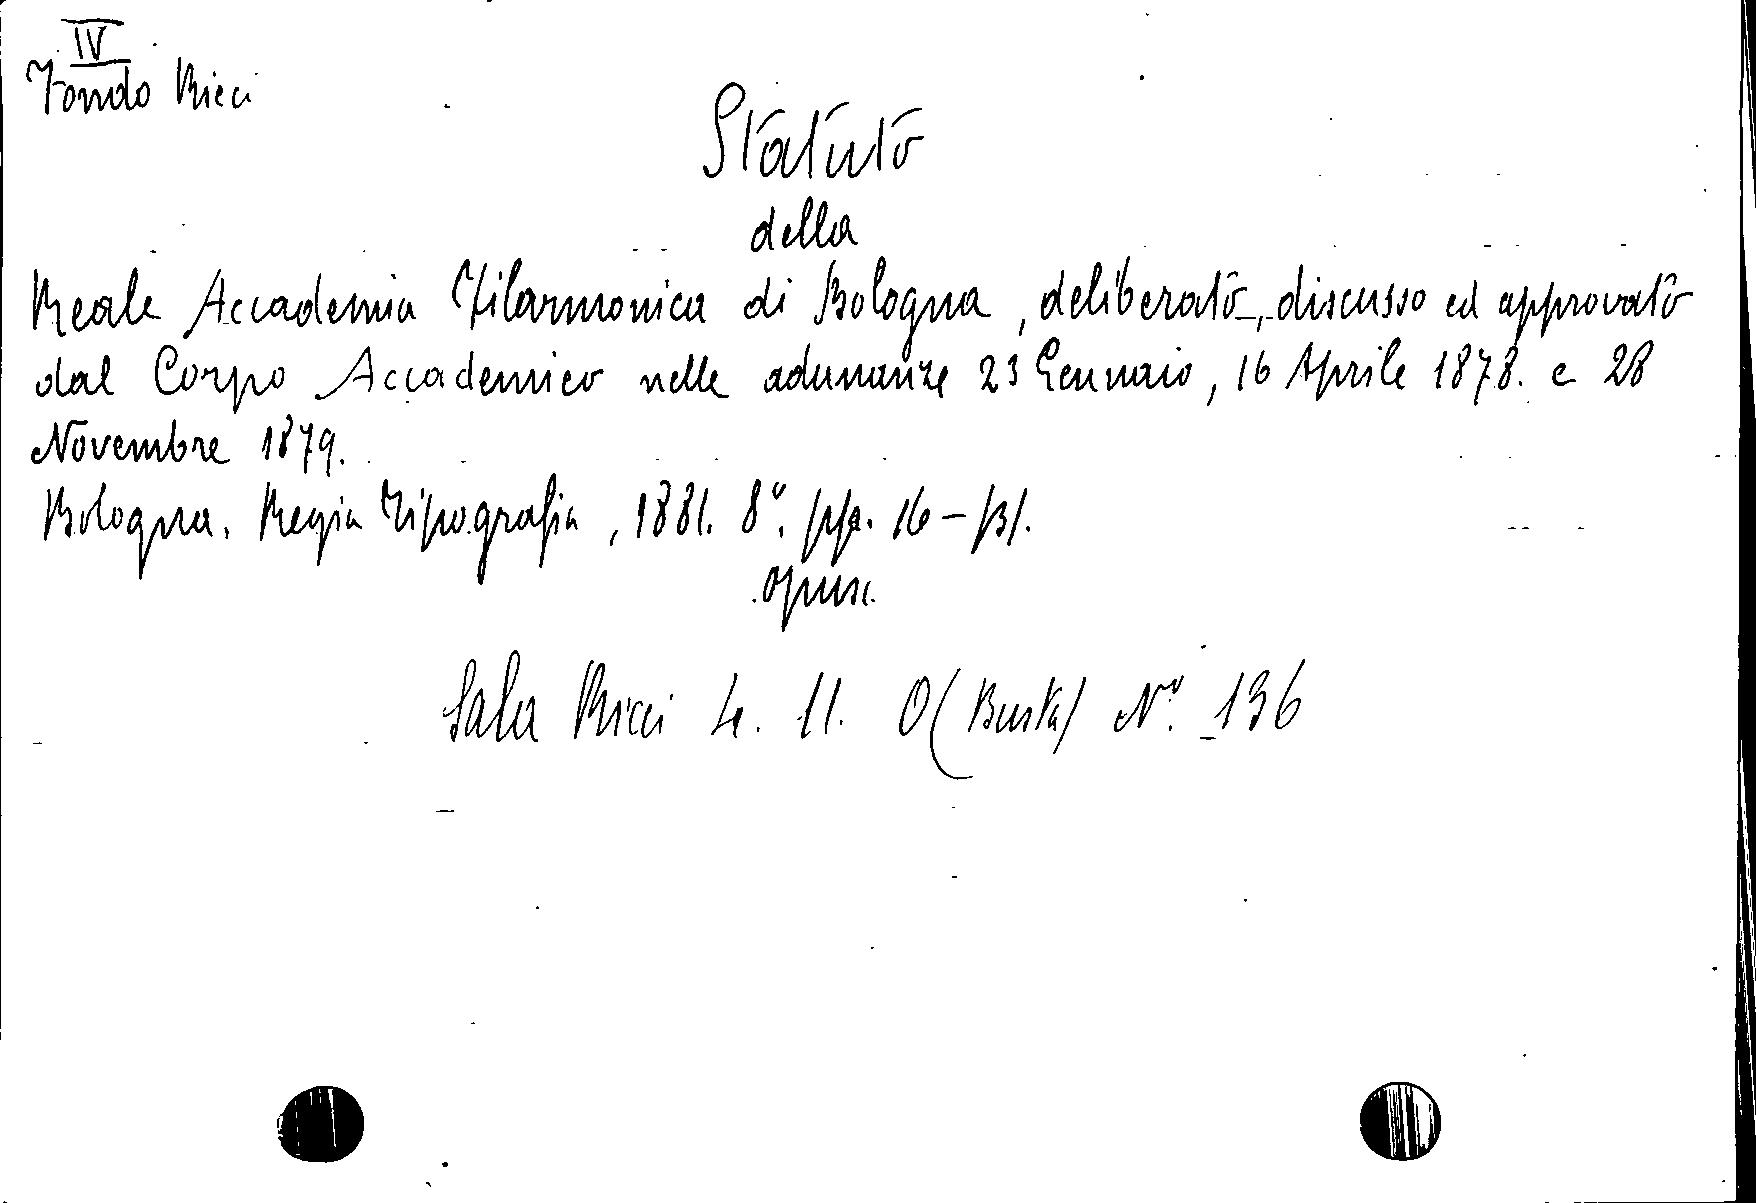 IV
Fondo Ricci
Statuto
della
Reale Accademia Filarmonica di Bologna, deliberato, discusso ed approvato
dal Corpo Accademico nelle adunanze 23 Gennaio, 16 Aprile 1878. e 28
Novembre 1879.
Bologna. Regia Tipografia, 1881. 8°. pp. 16 - [B].
opusc.
Sala Ricci L. 11. O (Busta) N° 136